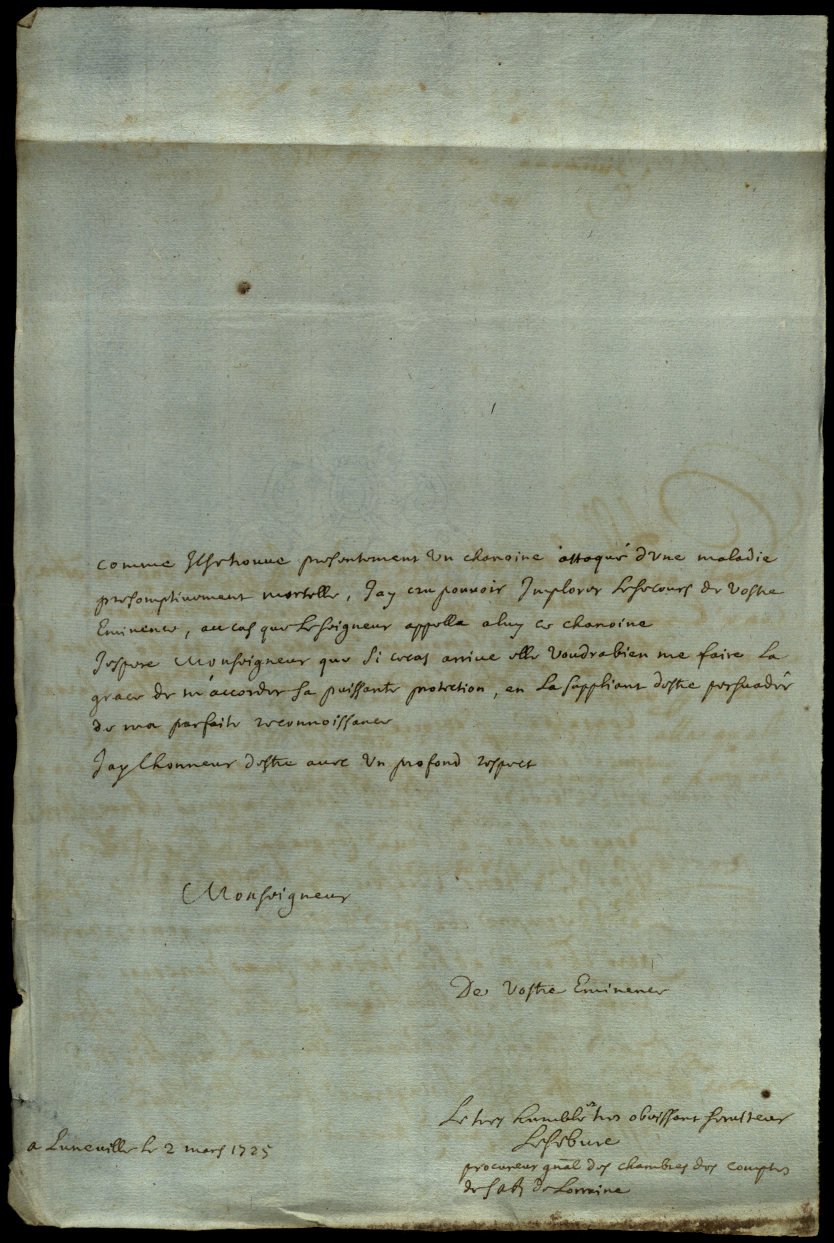 comme Ilse trouve presentement Un chanoine attaqué d'Une maladie
presomptivement mortelle, Jay cru pouvoir Implorer Le secours de Vostre
Eminence, au cas que Le seigneur appella a luy ce chanoine
Jespere Monseigneur que Si ce cas arrive elle Voudra bien me faire La
grace de m'accorder Sa puissante protection, en La suppliant destre persuadée
de ma parfaite reconnoissance
Jay lhonneur destre avec Un profond respect
Monseigneur
De Vostre Eminence
Le tres humble et tres obeissant serviteur
Lefebure
a Luneville le 2 mars 1725
procureur gñal des chambres des comptes
de S A R De Lorraine